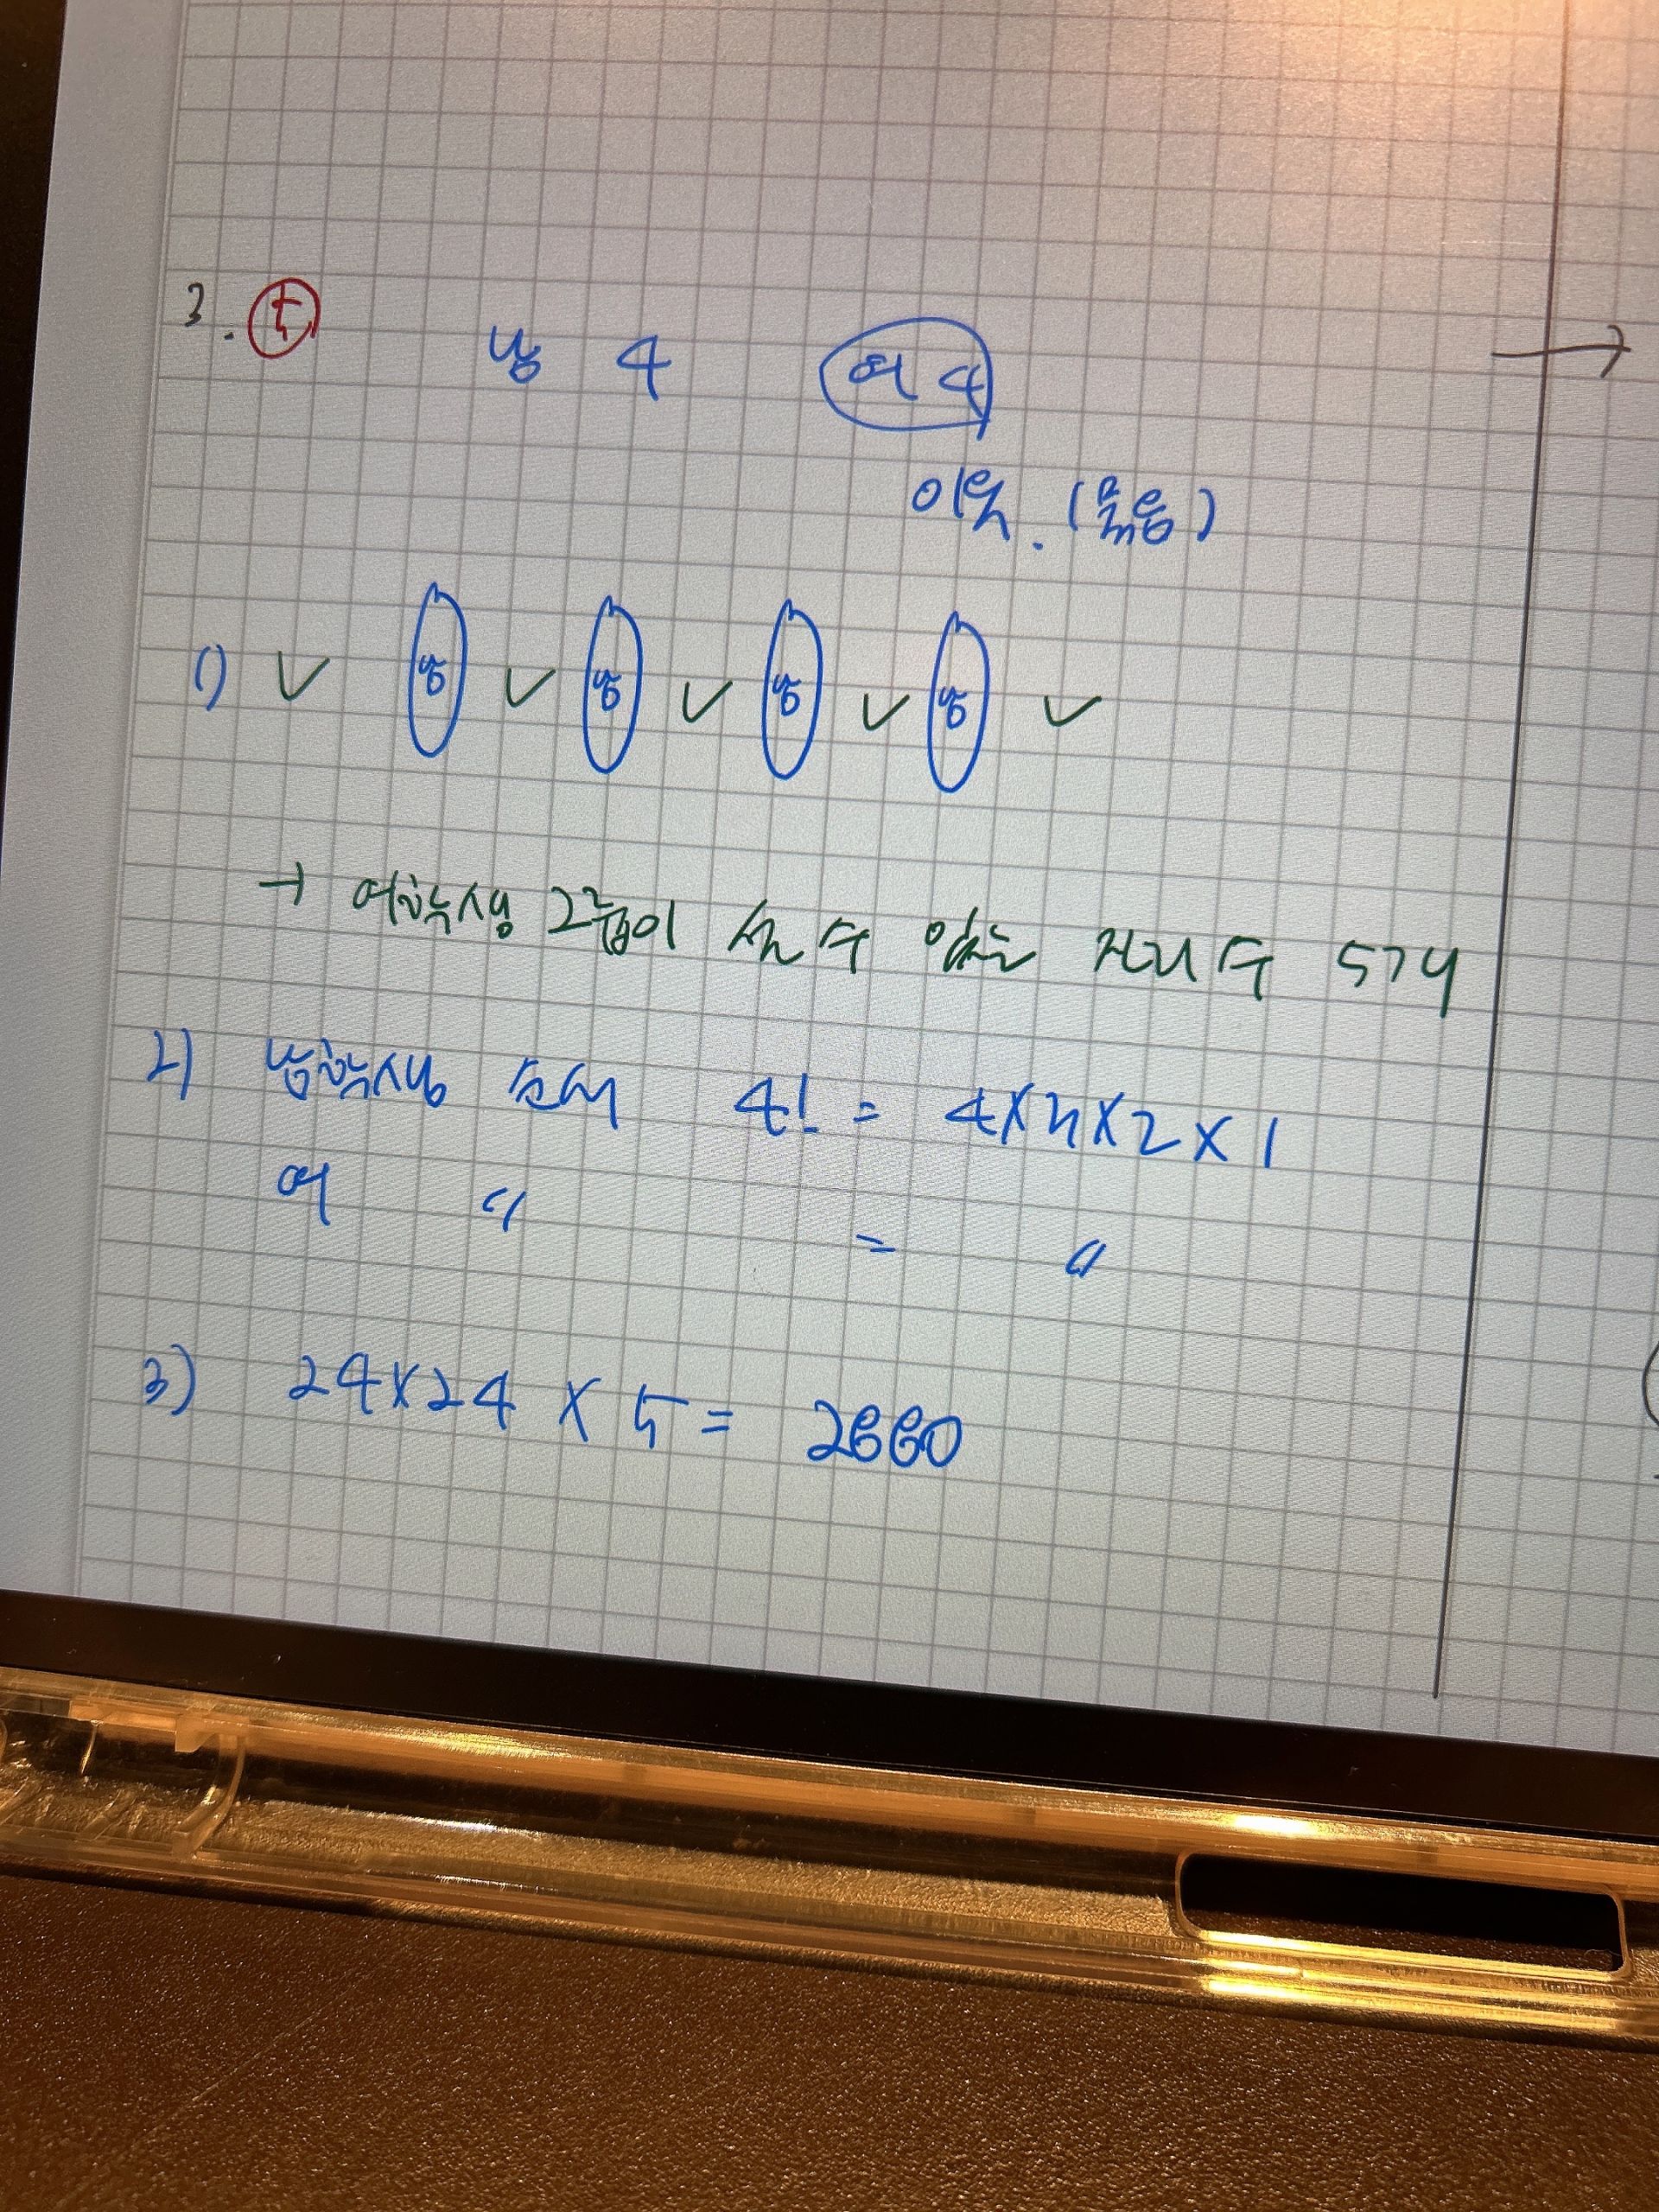 3. ⑤
남 4 여 4
이웃. (묶음)
1) ∨ 남 ∨ 남 ∨ 남 ∨ 남 ∨
→ 여학생 그룹이 설 수 있는 자리 수 5개
2) 남학생 순서 4! = 4×3×2×1
여 〃 = 〃
3) 24×24 × 5 = 2880
→